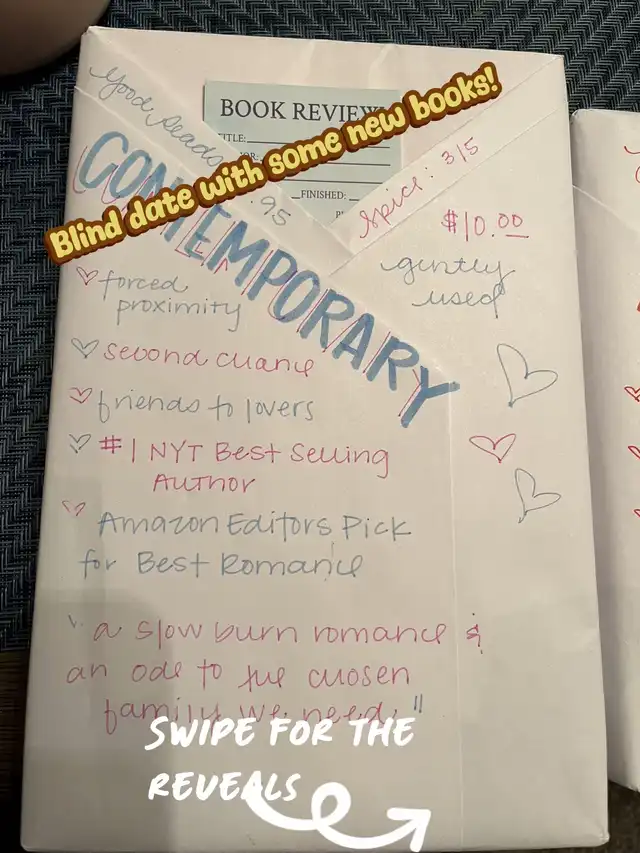 Blind date with some new books!
Good Reads
.95
BOOK REVIEW
TITLE:
FINISHED:
Spice: 3/5
$10.00
gently
used
CONTEMPORARY
forced
proximity
second chance
friends to lovers
#1 NYT Best Selling
Author
Amazon Editors Pick
for Best Romance
"a slow burn romance &
an ode to the chosen
family we need."
SWIPE FOR THE
REVEALS